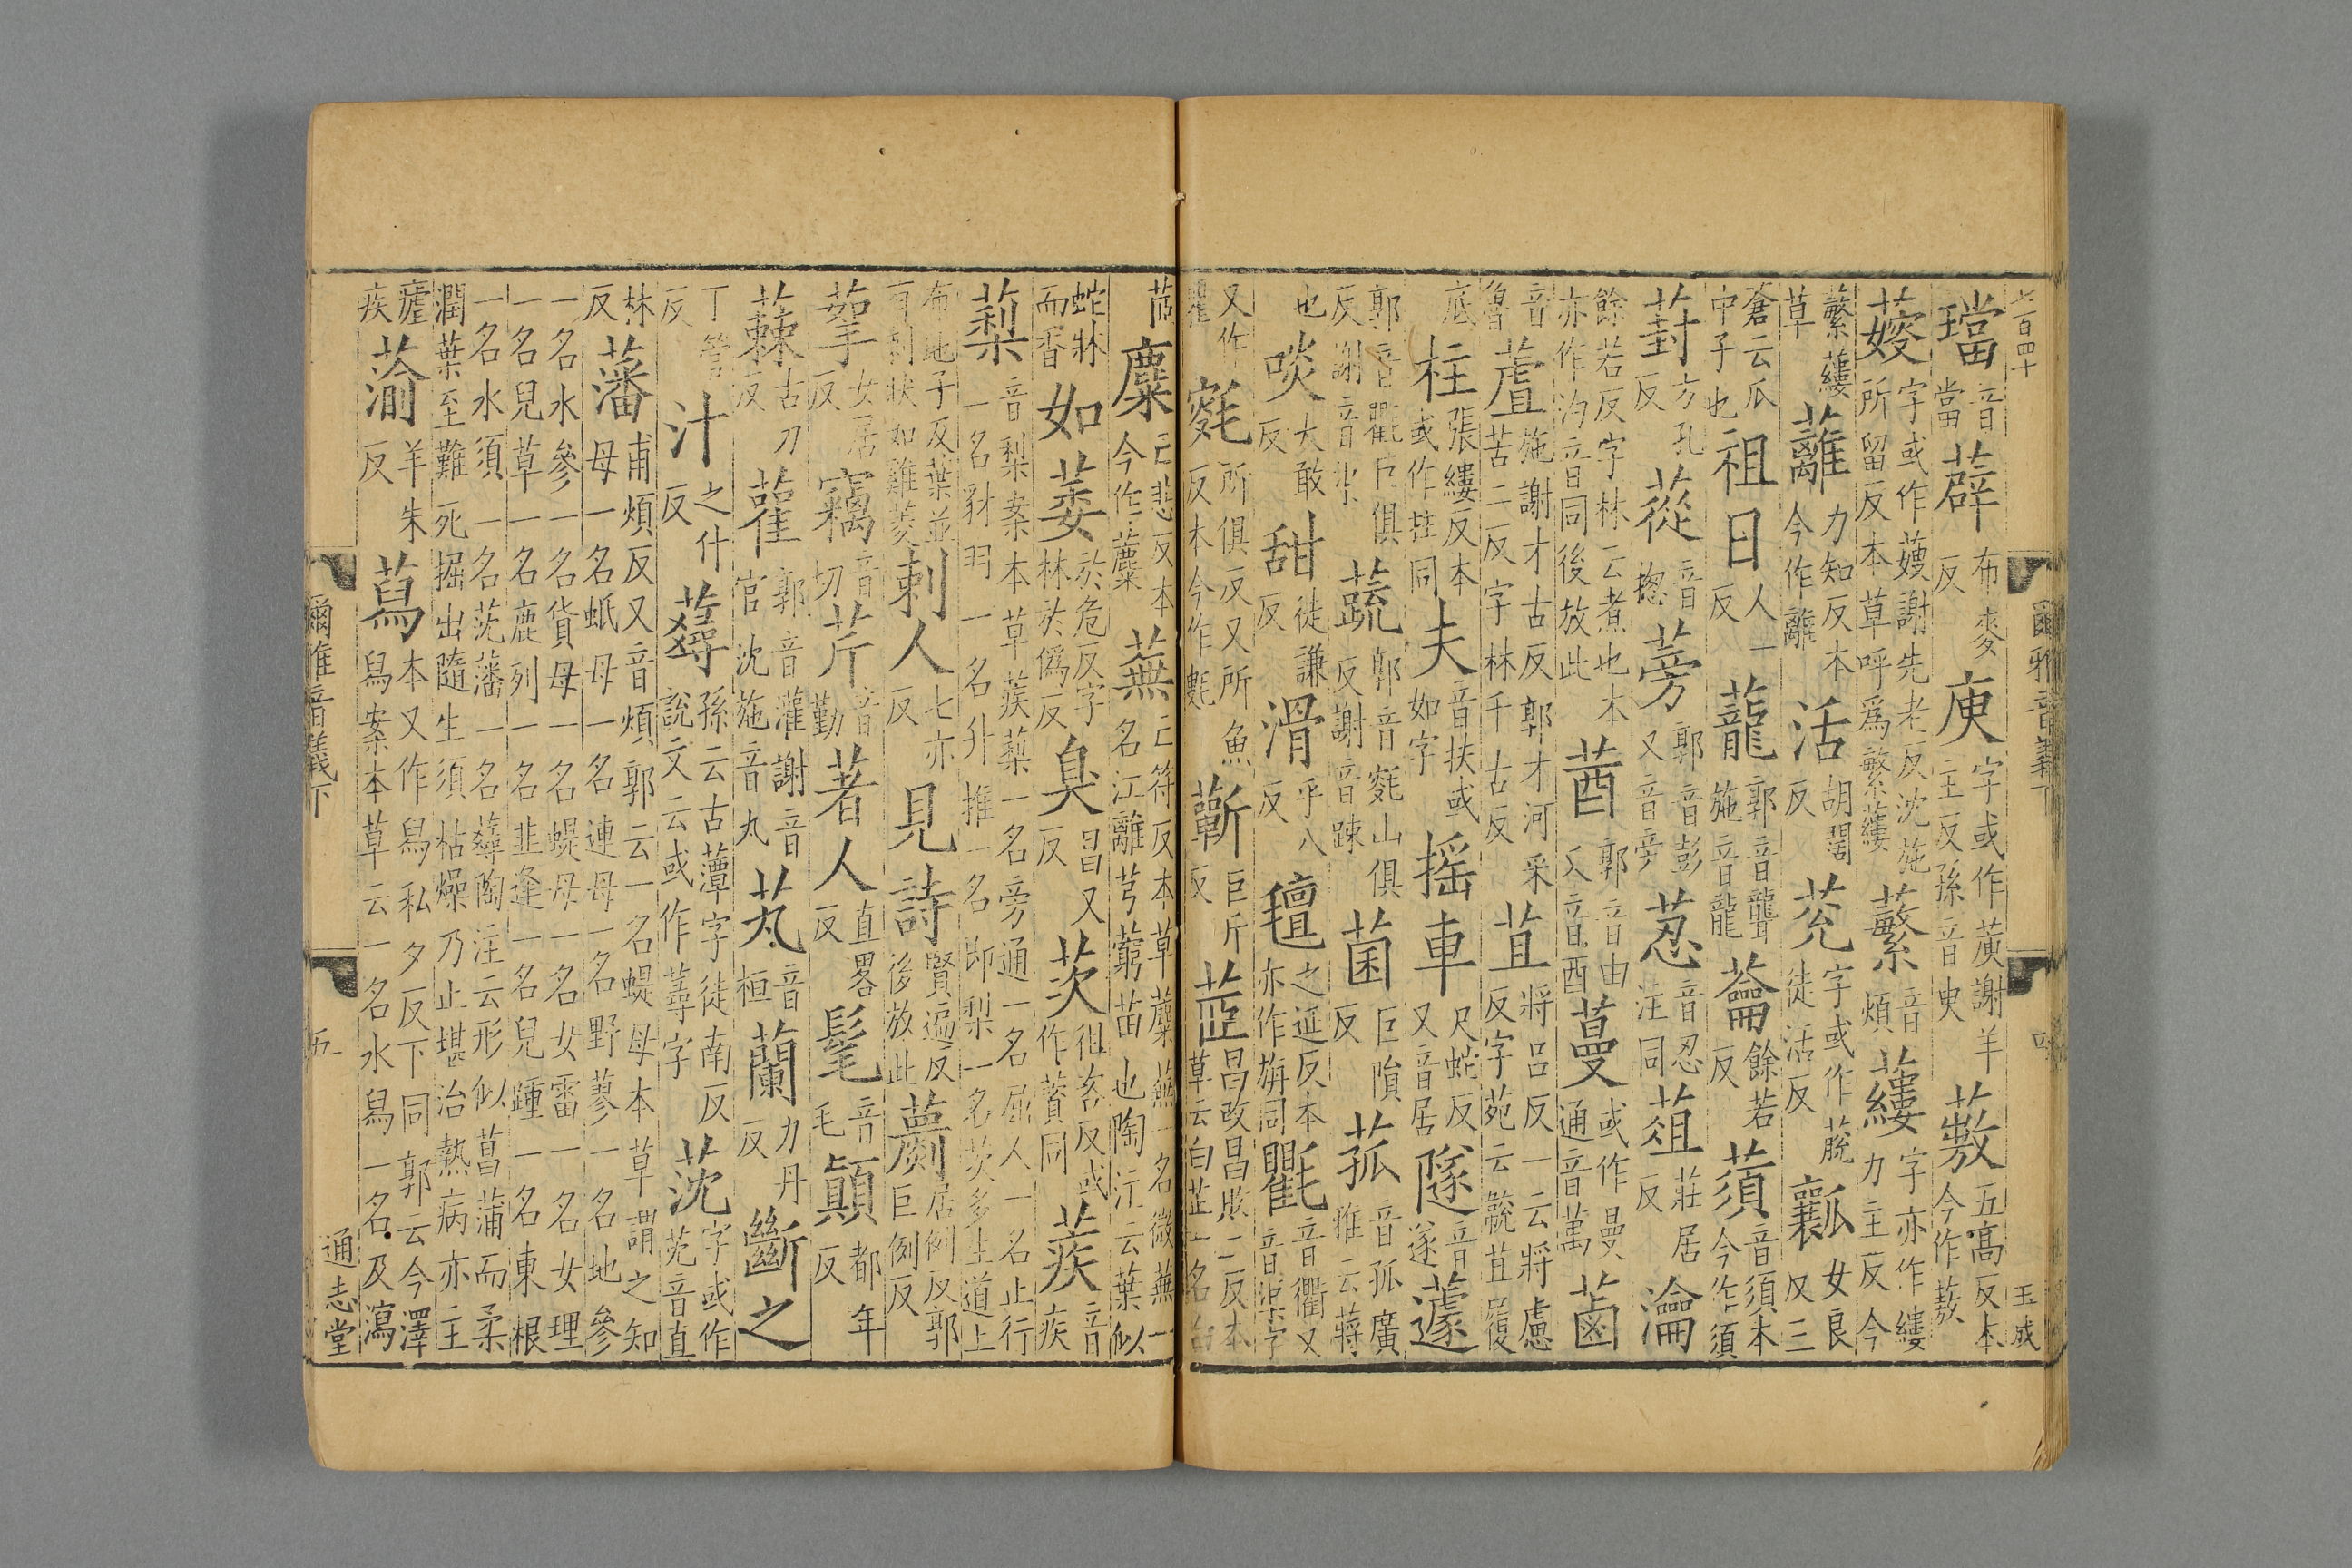 璫音當薜布麥反庾字或作䔬謝羊主反孫音臾蔜五高反本今作蔜
蔜字或作䕅謝先老反沈施所留反本草呼爲蘩蔞蘩音煩蔞字亦作縷力主反今
蘩蔞草蘺力知反本今作離活胡闊反莌字或作蔬徒活反瓤女良反三
蒼云瓜中子也祖日人一反蘢郭音聾施音龍蘥餘若反蕦音須本今作須
葑方孔反蓯音揔蒡郭音彭又音旁荵音忍注同葅莊居反瀹
餘若反字林云煮也本亦作汋音同後放此莤郭音由又音酉蔓或作曼通音萬菡
音魯蒩施謝才古反郭才河采苦二反字林千古反苴將呂反一云將慮反字苑云䖏苴履
底柱張縷反本或作拄同夫音扶或如字搖車尺蛇反又音居隧音遂蘧
郭音氍巨俱反謝音渠蔬郭音毹山俱反謝音踈菌巨隕反菰音孤廣雅云蔣
也啖大敢反甜徒謙反滑乎八反氊之延反本亦作旃同氍音衢又音渠字
又作䍕毹所俱反又所魚反本今作㲣蘄巨斤反茝昌改昌敗二反本草云白芷一名白
茝蘪亡悲反本今作蘪蕪亡符反本草蘪蕪一名薇蕪一名江離芎藭苗也陶注云葉似
蛇牀而香如萎於危反字林於僞反臭昌又反茨徂咨反或作薋同蒺音疾
蔾音梨案本草蒺蔾一名旁通一名屈人一名止行一名豺羽一名升推一名即梨一名茨多生道上
布地子及葉並有刺狀如雞菱刺人七亦反見詩賢遍反後放此藆居例反郭巨例反
挐女居反竊音切芹音勤著人直畧反髦音毛顚都年反
蕀古刀反雚郭音灌謝音官沈施音丸芄音桓蘭力丹反斷之
丁管反汁之什反蕁孫云古藫字徒南反說文云或作蕁字莐字或作莐音直
林反藩甫煩反又音煩郭云一名蝭母本草謂之知母一名蚔母一名連母一名野蓼一名地參
一名水參一名貨母一名蝭母一名女雷一名女理一名兒草一名鹿列一名韭逢一名兒踵一名東根
一名水須一名莐藩一名蕁陶注云形似菖蒲而柔潤葉至難死掘出隨生須枯燥乃止堪治熱病亦主
瘧疾蕍羊朱反蕮本又作舄私夕反下同郭云今澤舄案本草云一名水舄一名及瀉
爾雅音義下
四
玉成
爾雅音義下
五
通志堂